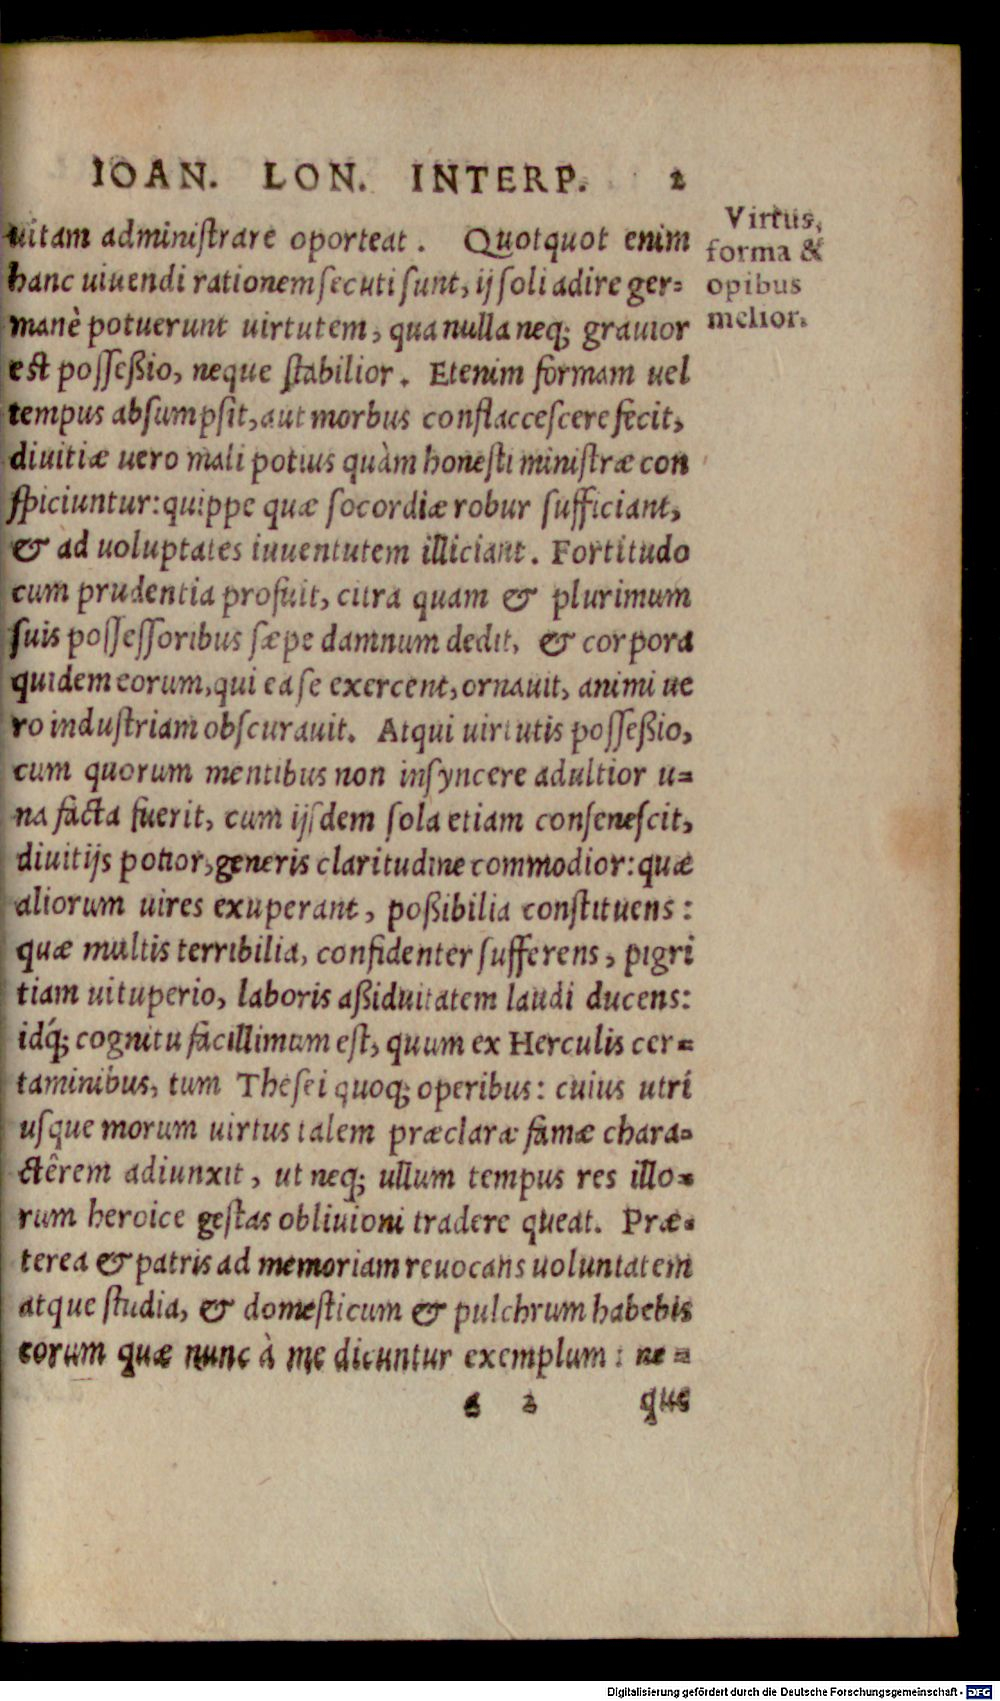 IOAN. LON. INTERP. 2
Virtus,
forma &
opibus
melior.
uitam administrare oporteat. Quotquot enim
hanc uiuendi rationem secuti sunt, ij soli adire ger-
manè potuerunt uirtutem, qua nulla neq; grauior
est posseßio, neque stabilior. Etenim formam uel
tempus absumpsit, aut morbus conflaccescere fecit,
diuitiæ uero mali potius quàm honesti ministræ con
spiciuntur: quippe quæ socordiæ robur sufficiant,
& ad uoluptates iuuentutem illiciant. Fortitudo
cum prudentia profuit, citra quam & plurimum
suis possessoribus sæpe damnum dedit, & corpora
quidem eorum, qui ea se exercent, ornauit, animi ue
ro industriam obscurauit. Atqui uirtutis posseßio,
cum quorum mentibus non insyncere adultior u-
na facta fuerit, cum ijsdem sola etiam consenescit,
diuitijs potior, generis claritudine commodior: quæ
aliorum uires exuperant, poßibilia constituens:
quæ multis terribilia, confidenter sufferens, pigri
tiam uituperio, laboris aßiduitatem laudi ducens:
idq́; cognitu facillimum est, quum ex Herculis cer-
taminibus, tum Thesei quoq; operibus: cuius utri
usque morum uirtus talem præclaræ famæ chara-
ctêrem adiunxit, ut neq; ullum tempus res illo-
rum heroice gestas obliuioni tradere queat. Præ-
terea & patris ad memoriam reuocans uoluntatem
atque studia, & domesticum & pulchrum habebis
eorum quæ nunc à me dicuntur exemplum: ne-
2 que
Digitalisierung gefördert durch die Deutsche Forschungsgemeinschaft - DFG